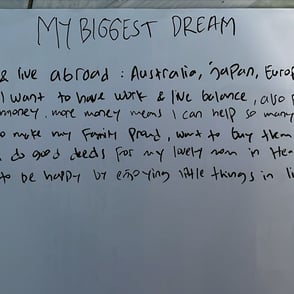 MY BIGGEST DREAM
& live abroad : Australia, Japan, Europ
I want to have work & live balance, also
money, more money means I can help so many
make my family proud, want to buy them
do good deeds for my lovely mom in Hea
to be happy by enjoying little things in li